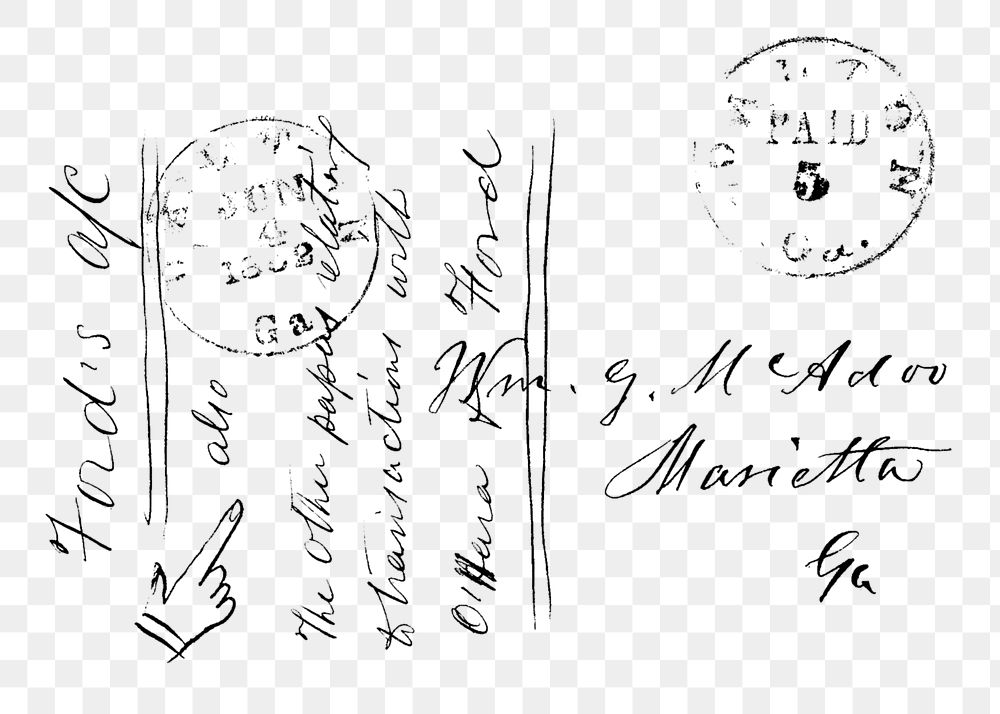 Fords a/c
also
The other papers relating
to transactions with
O'Hara & Ford
JUN
4
Ga
PAID
5
Ga.
Wm. G. McAdoo
Marietta
Ga